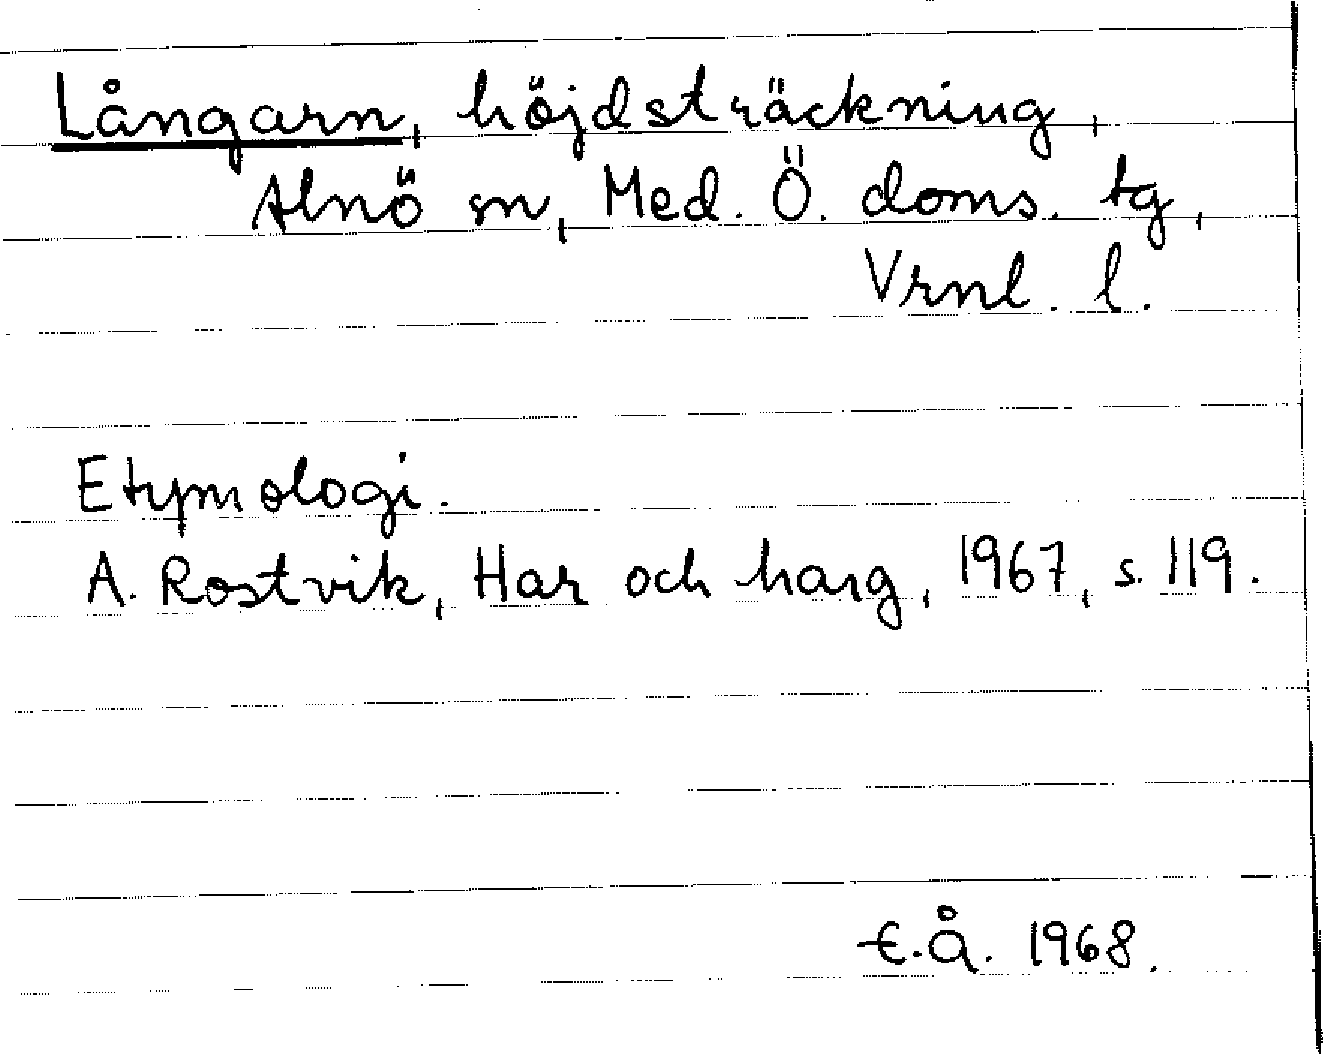 Långarn, höjdsträckning,
Alnö sn, Med. Ö. doms. tg,
Vrnl. l.
Etymologi.
A. Rostvik, Har och harg, 1967, s. 119.
E.Å. 1968.